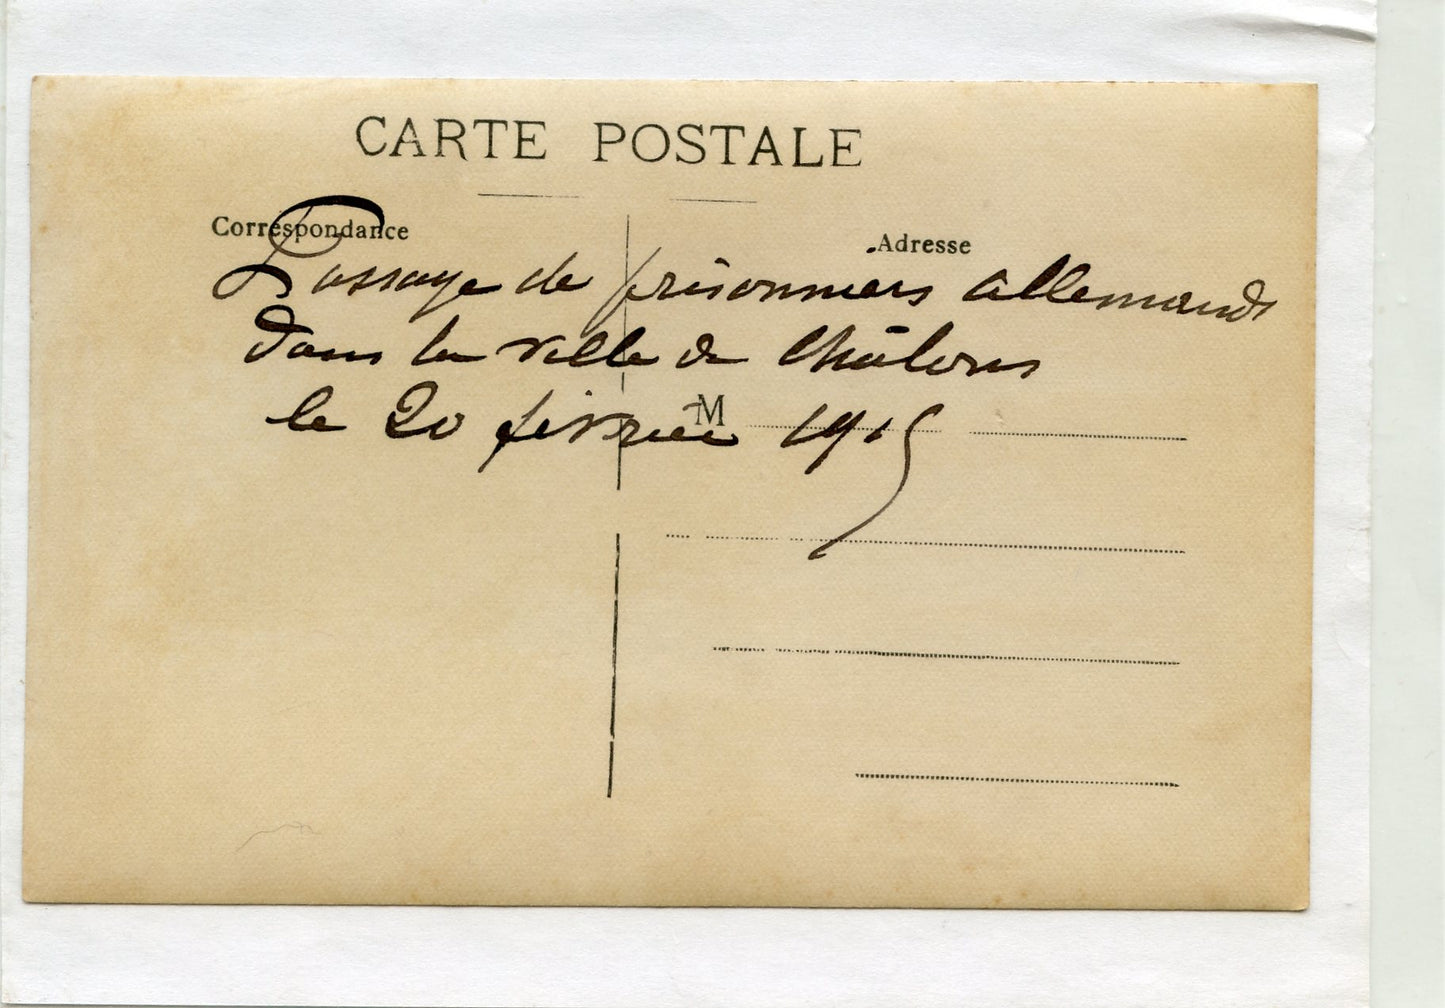 CARTE POSTALE
Correspondance
Adresse
Passage de prisonniers allemands
dans la ville de Châlons
le 20 février 1915
M